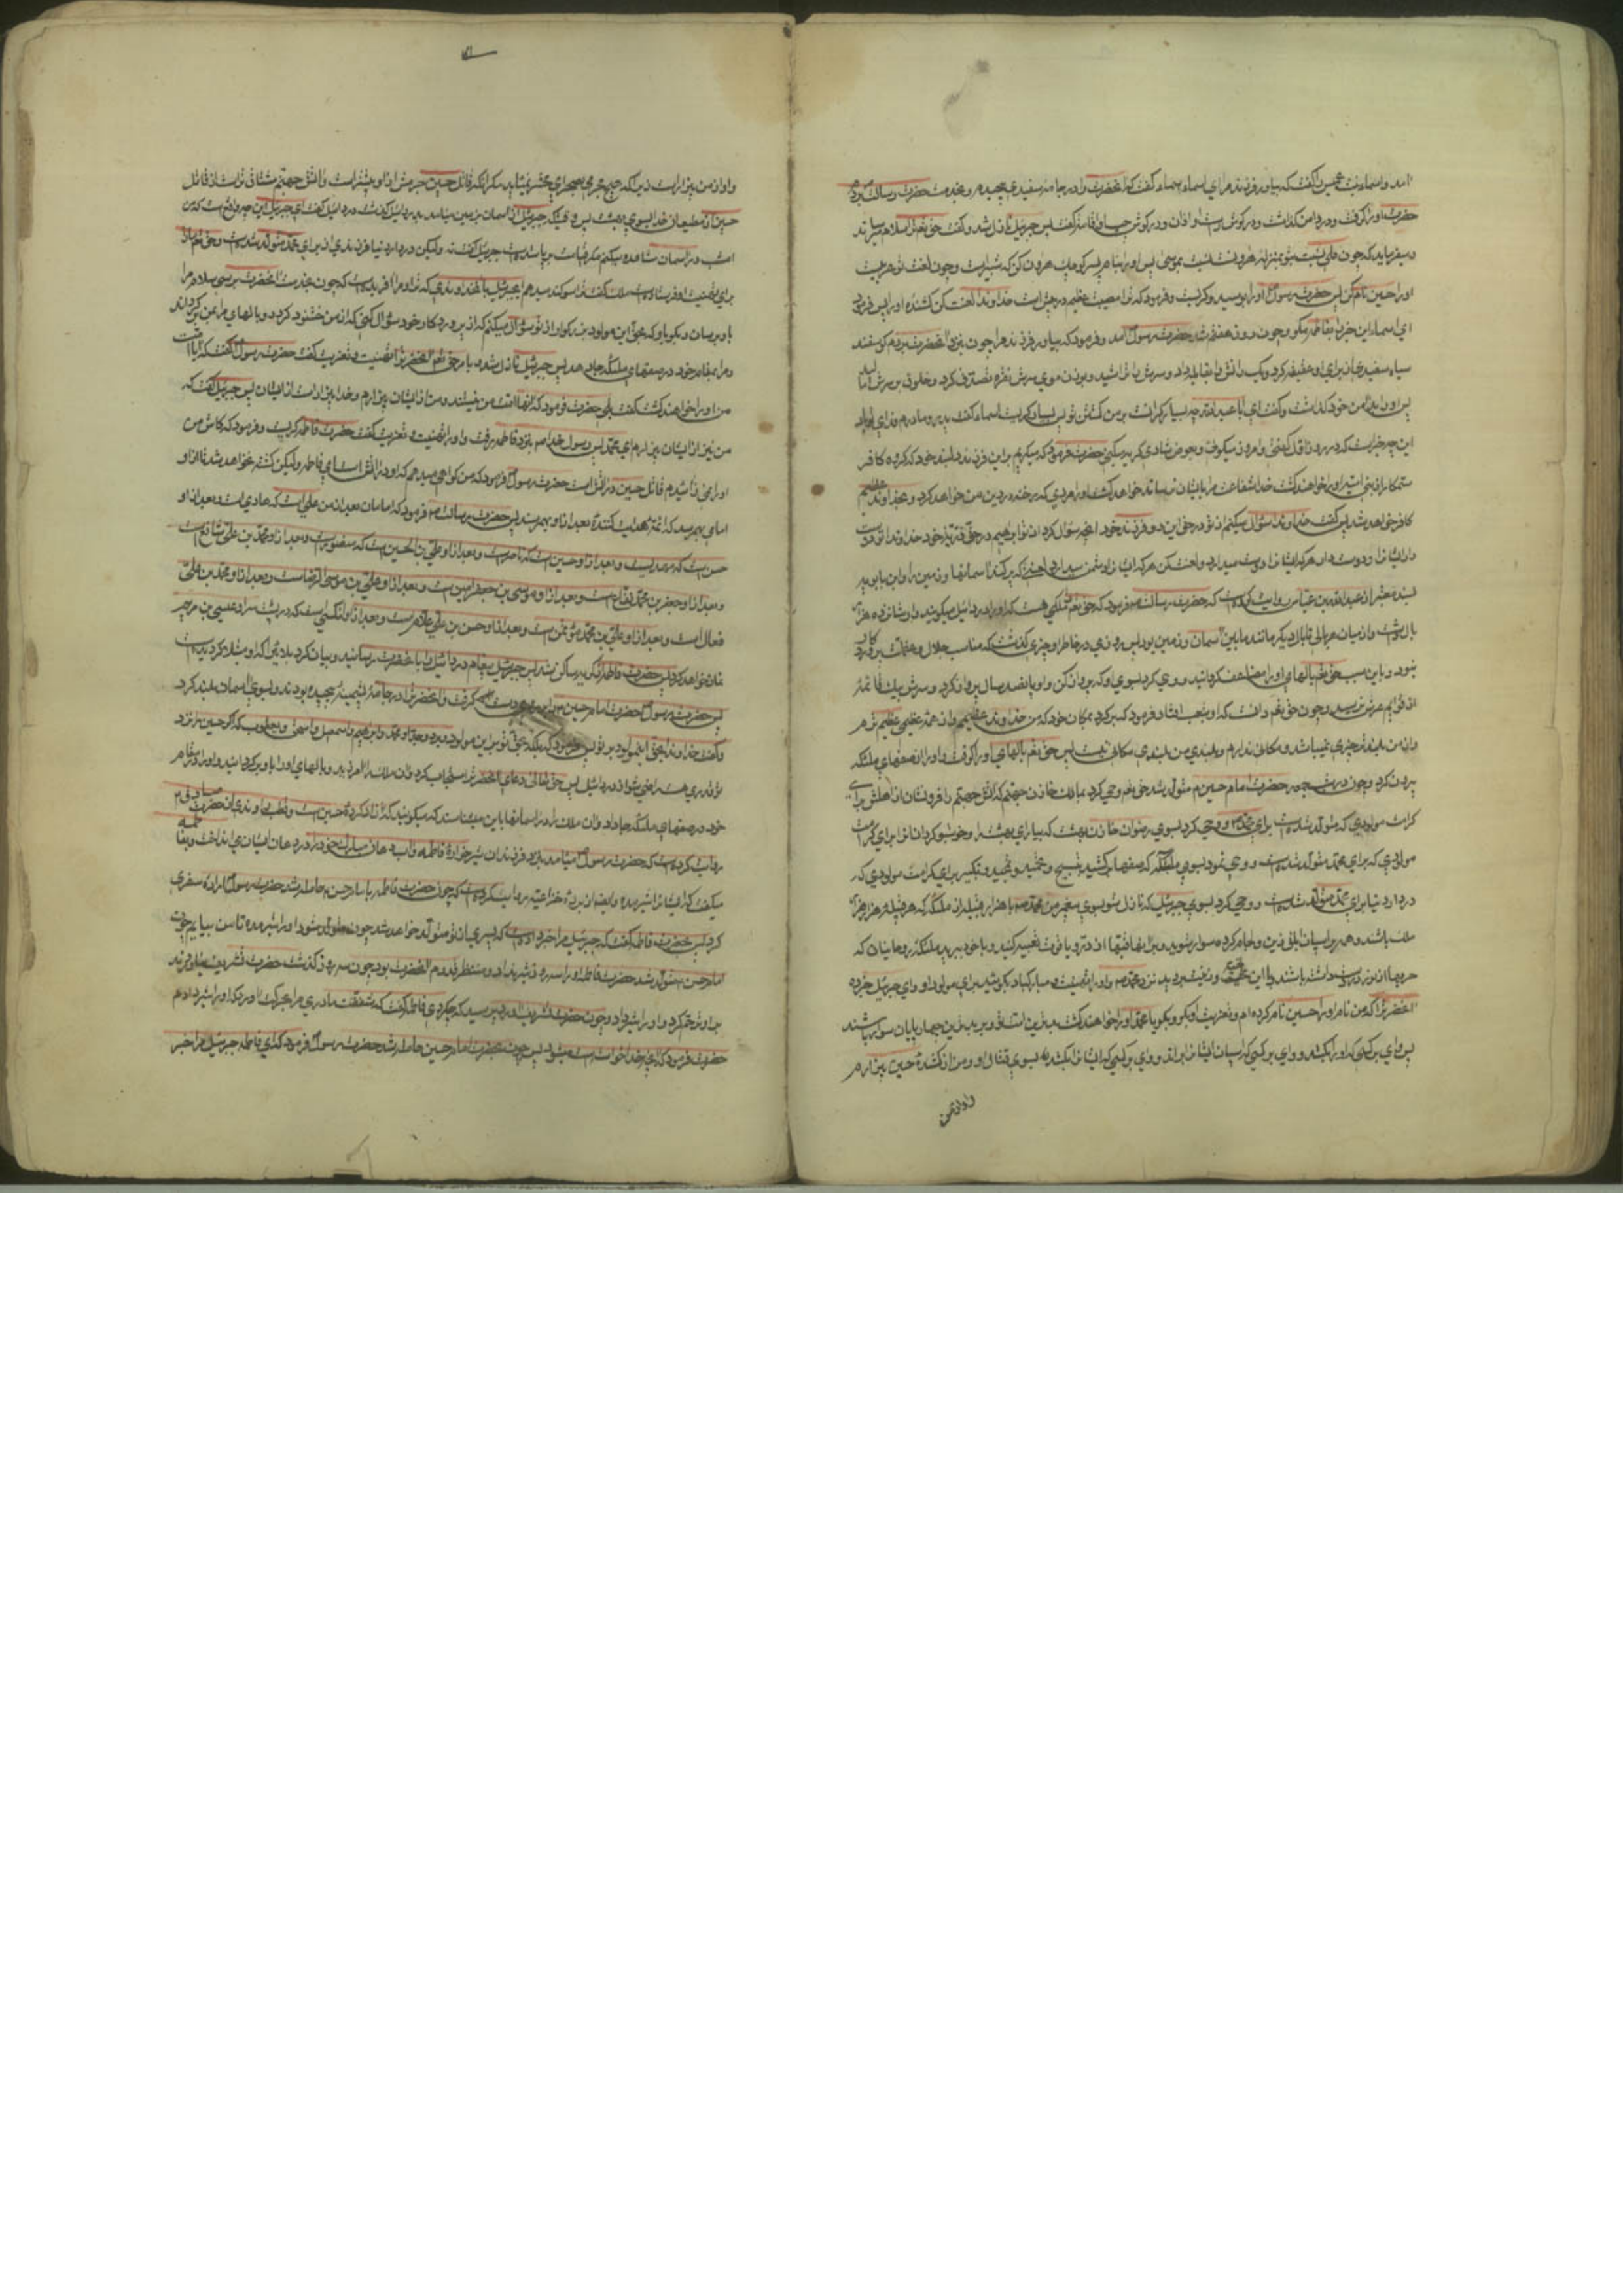 آمد و اسماء بنت عمیس را گفت که بیاور فرزند مرا ای اسماء اسماء گفت که آنحضرت را در جامهٔ سفیدی پیچیدم و بخدمت حضرت رسالت بردم
حضرت او را گرفت و در دامن گذاشت و در گوش راست او اذان و در گوش چپ او اقامه گفت پس جبرئیل نازل شد و گفت حق تعالی ترا سلام میرساند
و میفرماید که چون علی نسبت بتو بمنزلهٔ هرون است نسبت بموسی پس او را بنام پسر کوچک هرون نام کن که شبیر است و چون لغت تو عربیست
او را حسین نام کن پس حضرت رسول او را بوسید و گریست و فرمود که ترا مصیبت عظیم در پیش است خداوندا لعنت کن کشندهٔ او را پس فرمود
ای اسماء این خبر را بفاطمه مگو و چون روز هفتم شد حضرت رسول آمد و فرمود که بیاور فرزند مرا چون بنزد آنحضرت بردم گوسفند
سیاه سفیدی از برای او عقیقه کرد و یک رانش را بقابله داد و سرش را تراشید و بوزن موی سرش نقره تصدق کرد و خلوق بر سرش مالید
پس او را بدامن خود گذاشت و گفت ای اباعبدالله چه بسیار گرانست بر من کشتن تو پس بسیار گریست اسماء گفت پدر و مادرم فدای تو باد
این چه خبر است که در روز اول گفتی و امروز میگوئی و بعوض شادی گریه میکنی حضرت فرمود که میگریم بر این فرزند دلبند خود که گروه کافر
ستمکار از بنی امیه او را خواهند کشت خدا شفاعت مرا بایشان نرساند خواهد کشت او را مردی که رخنه در دین من خواهد کرد و بخداوند عظیم
کافر خواهد شد پس گفت خداوندا سؤال میکنم از تو در حق این دو فرزند خود آنچه سؤال کرد از تو ابراهیم در حق ذریهٔ خود خداوندا تو دوست
دار ایشان را و دوست دار هر که ایشان را دوست میدارد و لعنت کن هر که ایشان را دشمن میدارد لعنتی که پر کند آسمانها و زمین را و ابن بابویه
بسند معتبر از عبدالله بن عباس روایت کرده است که حضرت رسالت فرمود که حق تعالی را ملکی هست که او را دردائیل میگویند و او شانزده هزار
بال داشت و از میان هر بالی تا بال دیگر مانند مابین آسمان و زمین بود پس روزی در خاطر او چیزی گذشت که مناسب جلال و عظمت پروردگار
نبود و باین سبب حق تعالی بالهای او را مضاعف گردانید و وحی کرد بسوی او که پرواز کن و او پانصد سال پرواز کرد و سرش بیک قائمهٔ
از قوایم عرش نرسید و چون حق تعالی دانست که او بتعب افتاد فرمود که برگرد بمکان خود که من خداوند عظیمم و از همه عظیمی عظیم ترم
و از من بلندتر چیزی نمیباشد و مکانی ندارم و بلندی من بلندی مکانی نیست پس حق تعالی بالهای او را گرفت و او را از صفهای ملئکه
بیرون کرد و چون در شب جمعه حضرت امام حسین متولد شد حق تعالی وحی کرد بمالک خازن جهنم که آتش جهنم را فرونشان از اهلش برای
کرامت مولودی که متولد شده است برای محمد و وحی کرد بسوی رضوان خازن بهشت که بیارای بهشت را و خوشبو گردان آنرا برای کرامت
مولودی که برای محمد متولد شده است و وحی نمود بسوی ملئکه که صفها برکشید بتسبیح و تحمید و تمجید و تکبیر برای کرامت مولودی که
در دار دنیا برای محمد متولد شده است و وحی کرد بسوی جبرئیل که نازل شو بسوی پیغمبر من محمد با هزار قبیله از ملئکه که هر قبیله هزار هزار
ملک باشند و همه بر اسپان ابلق زین و لجام کرده سوار شوید و بر آنها قبها از در و یاقوت تعبیه کنید و با خود ببرید ملئکه روحانیان که
حربها از نور در دست داشته باشند با این جمعیت و زینت بروید نزد محمد و او را تهنیت و مبارکباد بگوئید برای مولود او و ای جبرئیل خبر ده
آنحضرت را که من نام او را حسین نام کرده ام و تعزیت او بگو و بگو یا محمد او را خواهند کشت بدترین امت تو بر بدترین چهارپایان سوار باشند
پس وای بر کسی که او را بکشد و وای بر کسی که اسپان ایشان را براند و وای بر کسی که ایشان را بکشد بسوی قتال او و من از کشندهٔ حسین بیزارم
و او از من
و او از من بیزار است زیرا که هیچ مجرمی بصحرای محشر نمیاید مگر آنکه قاتل حسین جرمش از او بیشتر است و آتش جهنم مشتاق تر است از قاتل
حسین از مطیعان خدا بسوی بهشت پس در وقتیکه جبرئیل از آسمان بزمین میامد بدردائیل گذشت دردائیل گفت ای جبرئیل این چه واقعه است که من
امشب در آسمان مشاهده میکنم مگر قیامت برپا شده است جبرئیل گفت نه ولیکن در دار دنیا فرزندی از برای محمد متولد شده است و حق تعالی مرا از
برای تهنیت او فرستاده است ملک گفت ترا سوگند میدهم ای جبرئیل بآن خداوندی که ترا و مرا آفریده است که چون بخدمت آنحضرت برسی سلام مرا
باو برسان و بگو باو که بحق این مولود بزرگوار از تو سؤال میکنم که از پروردگار خود سؤال کنی که از من خشنود گردد و بالهای مرا بمن برگرداند
و مرا بمقام خود در صفهای ملئکه جا دهد پس جبرئیل نازل شد و بامر حق تعالی آنحضرت را تهنیت و تعزیت گفت حضرت رسول گفت که آیا امت
من او را خواهند کشت گفت بلی حضرت فرمود که آنها امت من نیستند و من از ایشان بیزارم و خدا بیزار است از ایشان پس جبرئیل گفت که
من نیز از ایشان بیزارم ای محمد پس رسول خدا بنزد فاطمه رفت و او را تهنیت و تعزیت گفت حضرت فاطمه گریست و فرمود که کاش من
او را نمی زائیدم قاتل حسین در آتش است حضرت رسول فرمود که من گواهی میدهم که او در آتش است ای فاطمه ولیکن کشته نخواهد شد تا از او
امامی بهم رسد که ائمه هدایت کننده بعد از او بهم رسند پس حضرت رسالت فرمود که امامان بعد از من علی است که هادی است و بعد از او
حسن است که مهدیست و بعد از او حسین است که ناصر است و بعد از او علی بن الحسین است که منصور است و بعد از او محمد بن علی شافع است
و بعد از او جعفر بن محمد نفاع است و بعد از او موسی بن جعفر امین است و بعد از او علی بن موسی الرضاست و بعد از او محمد بن علی
فعال است و بعد از او علی بن محمد مؤتمن است و بعد از او حسن بن علی علام است و بعد از او آنکسی است که در پشت سر او عیسی بن مریم
نماز خواهد کرد پس حضرت فاطمه از گریه ساکن شد پس جبرئیل پیغام دردائیل را بآنحضرت رسانید و بیان کرد بلائی را که او مبتلا گردیده است
پس حضرت رسول حضرت امام حسین را بر روی دست گرفت و آنحضرت را در جامهٔ پشمینهٔ پیچیده بودند و بسوی آسمان بلند کرد
و گفت خداوندا بحق این مولود بر تو پس فرمود که بلکه بحق تو بر این مولود و بر جد او محمد و ابراهیم و اسمعیل و اسحق و یعقوب که اگر حسین را نزد
تو قدری هست راضی شو از دردائیل پس حق تعالی دعای آنحضرت را مستجاب کرد و آن ملک را آمرزید و بالهای او را باو برگردانید و او را بمقام
خود در صفهای ملئکه جا داد و آن ملک را در آسمانها باین میشناسند که میگویند که آزاد کردهٔ حسین است و قطب راوندی از حضرت صادق
روایت کرده است که حضرت رسول میامد بنزد فرزندان شیرخوارهٔ فاطمه و آب دهان مبارک خود را در دهان ایشان می انداخت و بفاطمه
میگفت که ایشان را شیر مده و ایضا از برهٔ خزاعیه روایت کرده است که چون حضرت فاطمه بامام حسن حامله شد حضرت رسول ارادهٔ سفری
کرد پس حضرت فاطمه گفت که جبرئیل مرا خبر داده است که پسری از تو متولد خواهد شد چون متولد شود او را شیر مده تا من بیایم چون
امام حسن متولد شد حضرت فاطمه او را سه روز شیر نداد و منتظر قدوم آنحضرت بود چون سه روز گذشت حضرت تشریف نیاوردند
بر او ترحم کرد و او را شیر داد و چون حضرت تشریف آورد پرسید که چه کردی فاطمه گفت که شفقت مادری مرا بحرکت آورد که او را شیر دادم
حضرت فرمود که آنچه خدا خواسته است میشود پس چون بحضرت امام حسین حامله شد حضرت رسول فرمود که ای فاطمه جبرئیل مرا خبر